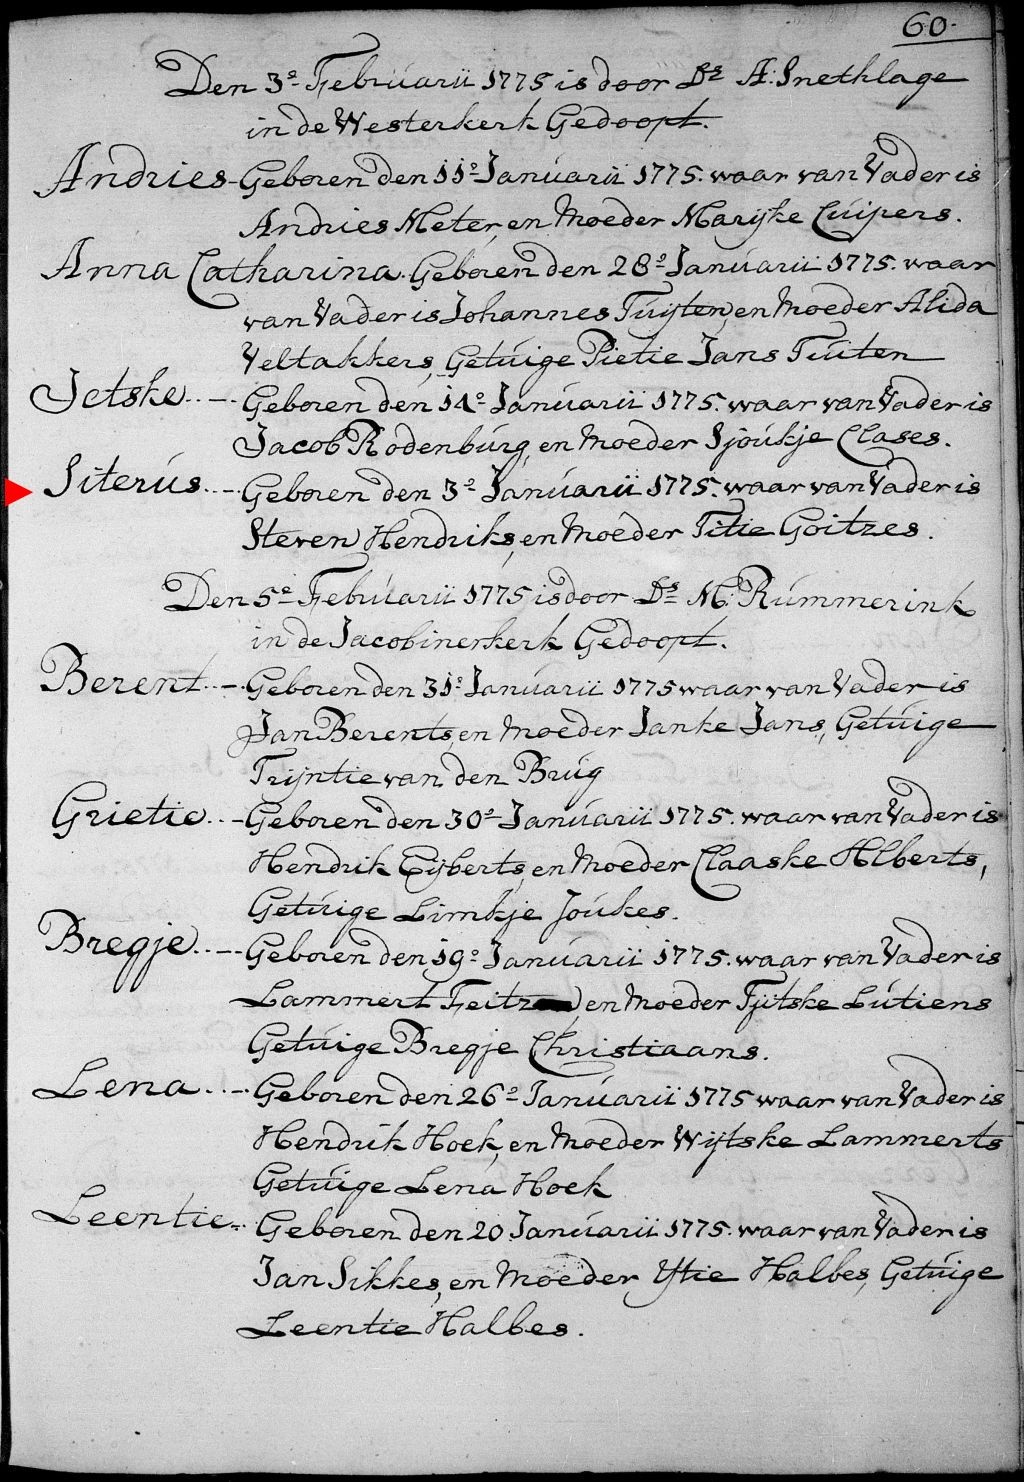 60.
Den 3e Februarii 1775 is door Ds A: Snethlage
in de Westerkerk Gedoopt.
Andries - Geboren den 11e Januarii 1775. waar van Vader is
Andries Meter, en Moeder Marijke Cuipers.
Anna Catharina. Geboren den 28e Januarii 1775. waar
van Vader is Johannes Tuijten, en Moeder Alida
Veltakkers, Getuige Pietie Jans Tuiten
Jetske..-. Geboren den 14e Januarii 1775. waar van Vader is
Jacob Rodenburg, en Moeder Sjoukje Clases.
Siterus...- Geboren den 3e Januarii 1775. waar van Vader is
Steven Hendriks, en Moeder Titie Goitzes.
Den 5e Februarii 1775 is door Ds M: Rummerink
in de Jacobinerkerk Gedoopt.
Berent..- Geboren den 31e Januarii 1775 waar van Vader is
Jan Berents, en Moeder Janke Jans, Getuige
Trijntie van den Brug
Grietie..- Geboren den 30e Januarii 1775. waar van Vader is
Hendrik Eijberts, en Moeder Claaske Alberts,
Getuige Limkje Joukes.
Bregje..- Geboren den 19e Januarii 1775. waar van Vader is
Lammert en Moeder Tjitske Lutiens
Getuige Bregje Christiaans.
Lena...- Geboren den 26e Januarii 1775 waar van Vader is
Hendrik Hoek, en Moeder Wijtske Lammerts
Getuige Lena Hoek
Leentie-.. Geboren den 20 Januarii 1775. waar van Vader is
Jan Sikkes, en Moeder Ytie Halbes, Getuige
Leentie Halbes.